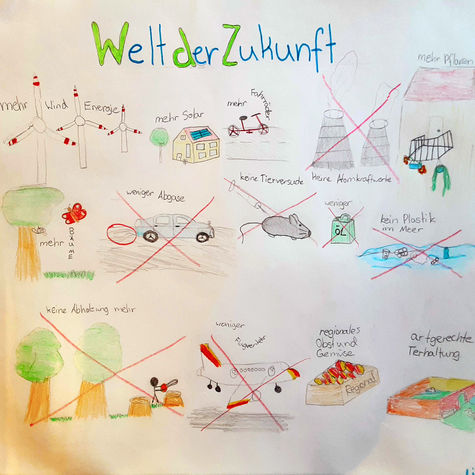 Welt der Zukunft
mehr Wind Energie
mehr Solar
mehr Fahrräder
keine Atomkraftwerke
mehr
mehr
BÄUME
weniger Abgase
keine Tierversuche
weniger
ÖL
kein Plastik
im Meer
keine Abholzung mehr
weniger
regionales
Obst und
Gemüse
Regional
artgerechte
Terhaltung